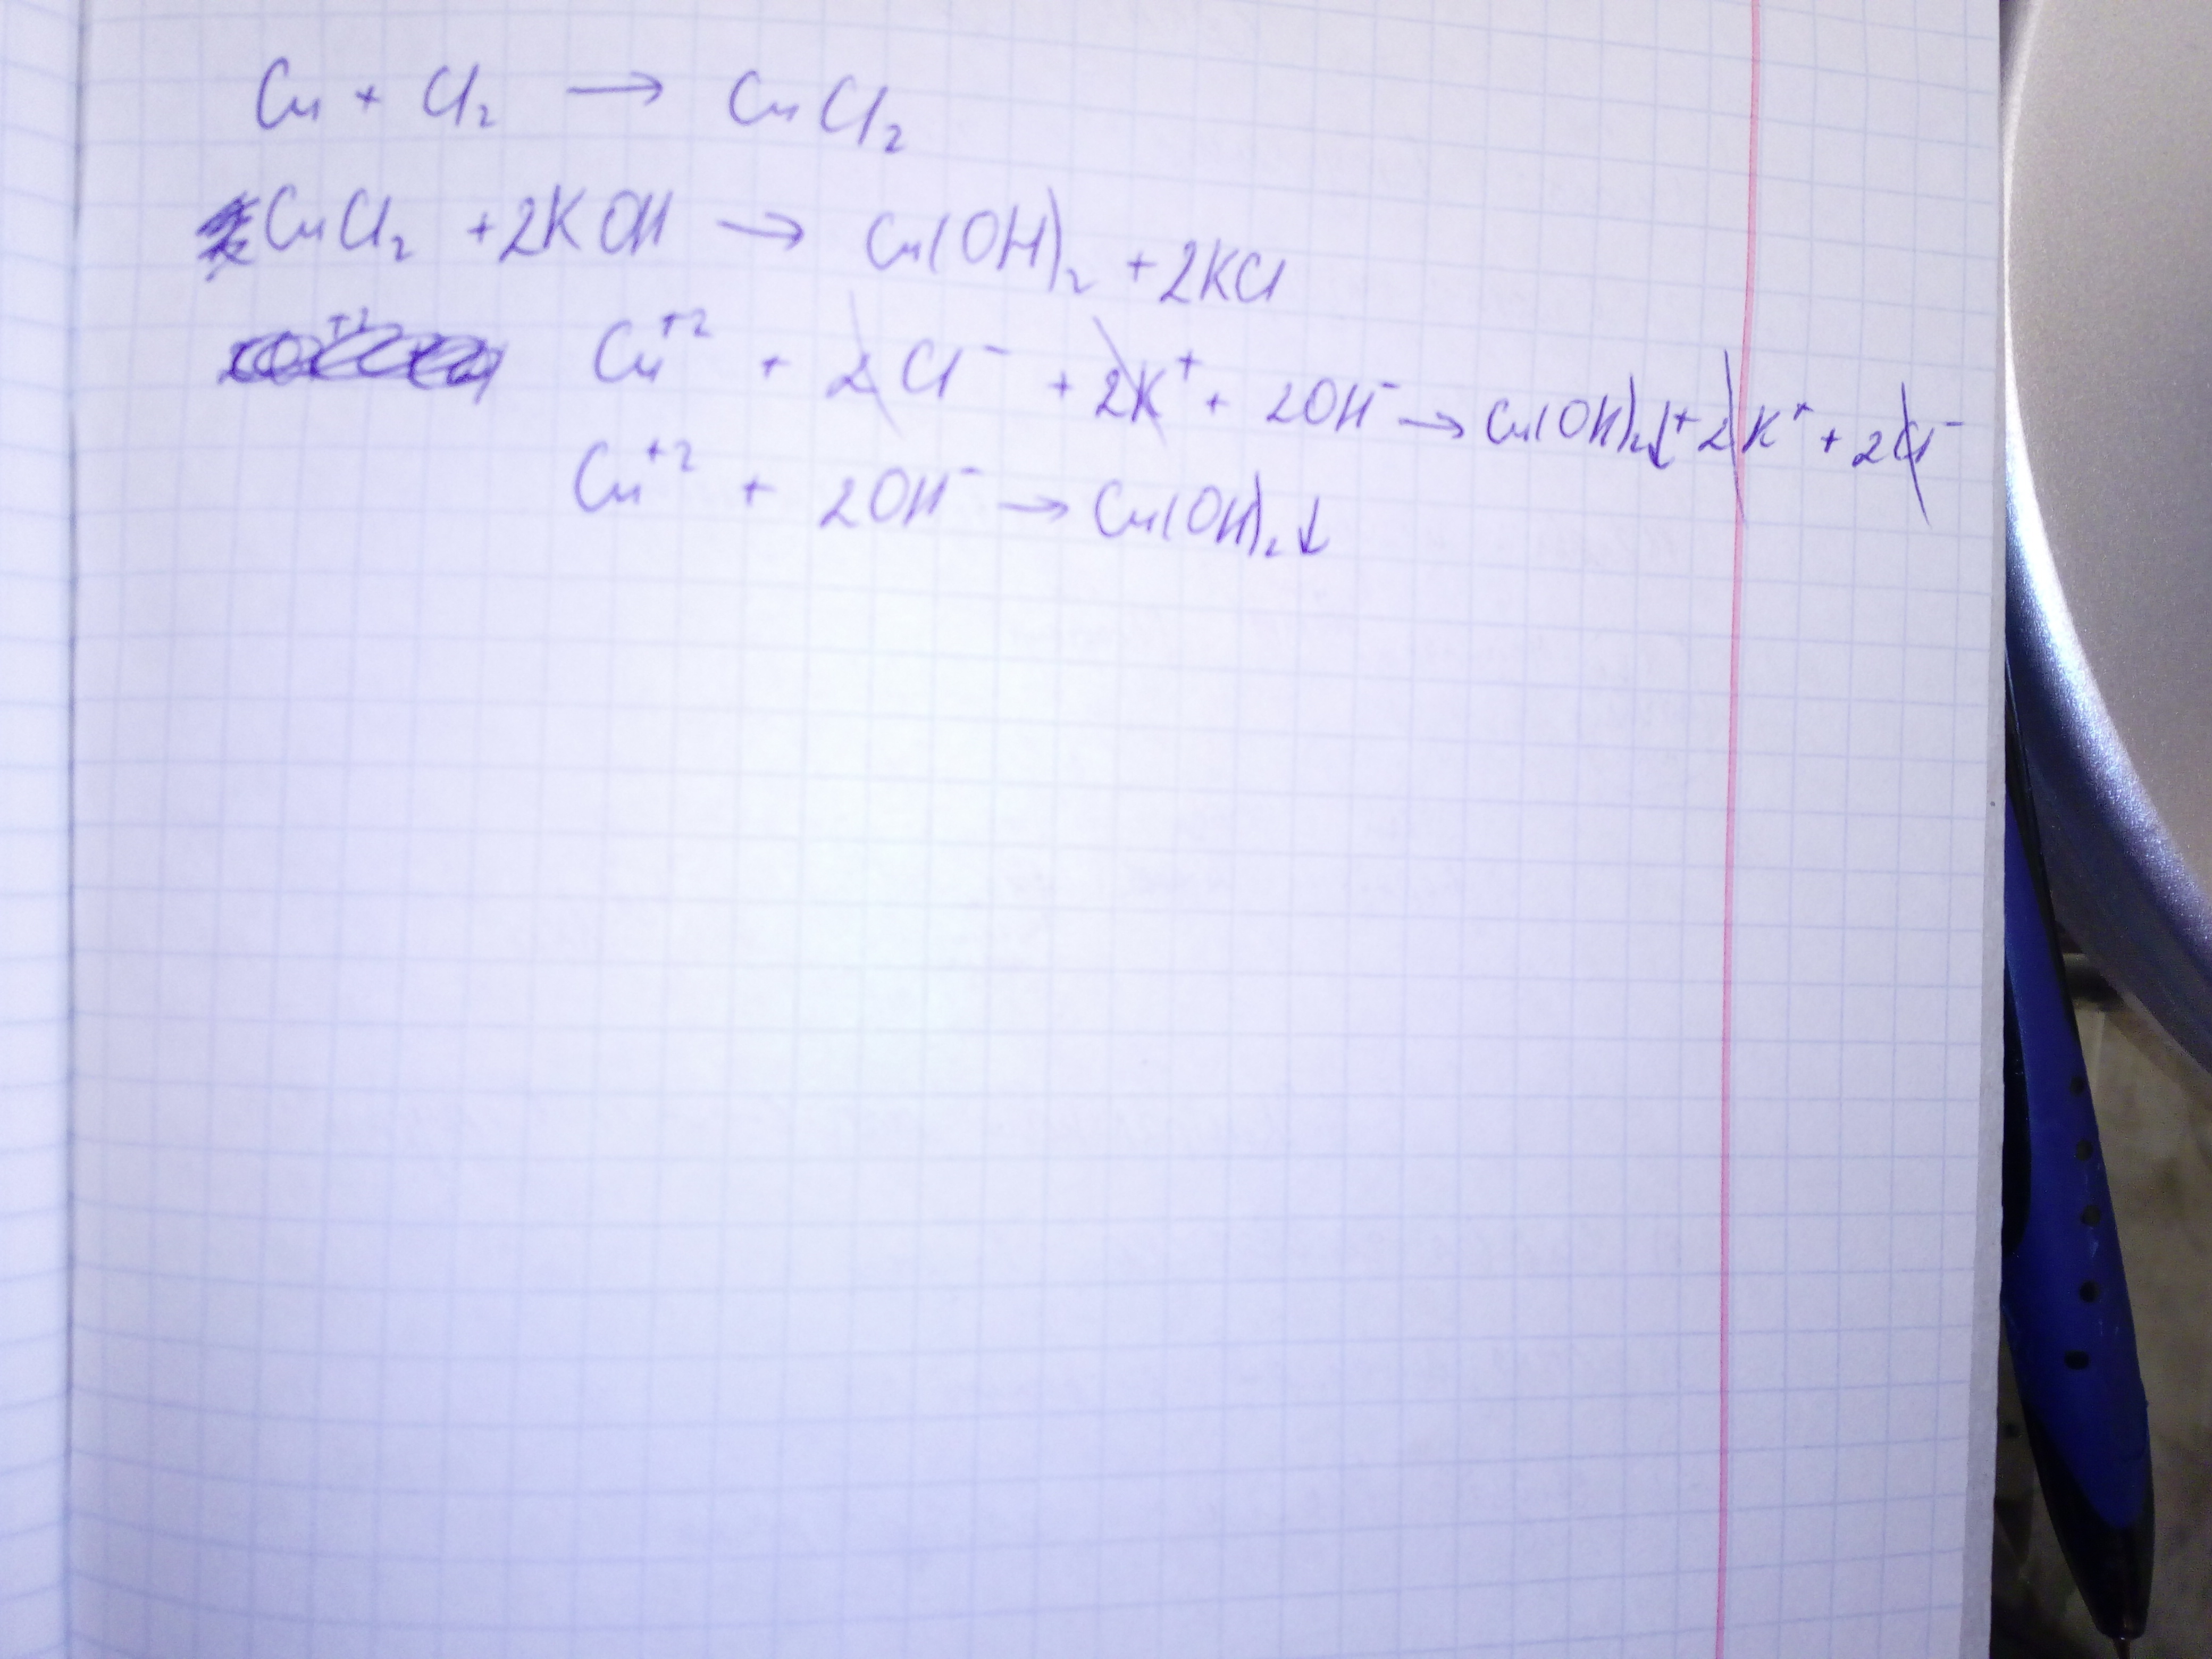 Cu + Cl₂ → CuCl₂
CuCl₂ + 2KOH → Cu(OH)₂ + 2KCl
Cu⁺² + 2Cl⁻ + 2K⁺ + 2OH⁻ → Cu(OH)₂↓ + 2K⁺ + 2Cl⁻
Cu⁺² + 2OH⁻ → Cu(OH)₂↓